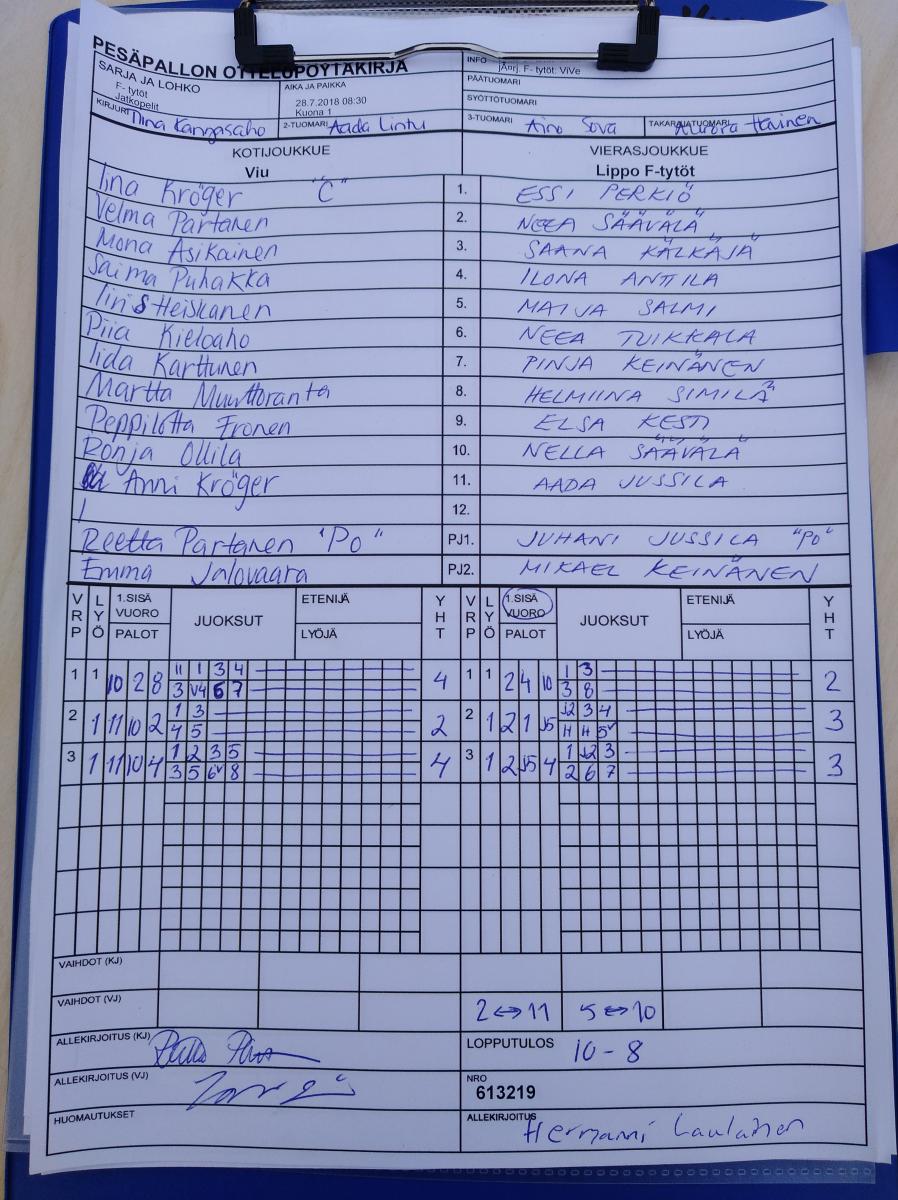 PESÄPALLON OTTELUPÖYTÄKIRJA
SARJA JA LOHKO
F- tytöt
Jatkopelit
AIKA JA PAIKKA
28.7.2018 08:30
Kuona 1
INFO Järj. F- tytöt: ViVe
PÄÄTUOMARI
SYÖTTÖTUOMARI
KIRJURI Tiina Kangasaho 2-TUOMARI Aada Lintu 3-TUOMARI Aino Sova TAKARAJATUOMARI Aurora
KOTIJOUKKUE VIERASJOUKKUE
Viu Lippo F-tytöt
Iina Kröger "C" 1. ESSI PERKIÖ
Velma Partanen 2. NEEA SÄÄVÄLÄ
Mona Asikainen 3. SAANA KÄLKÄJÄ
Saima Puhakka 4. ILONA ANTTILA
Iiris Heiskanen 5. MAIJA SALMI
Piia Kieloaho 6. NEEA TUIKKALA
Iida Karttunen 7. PINJA KEINÄNEN
Martta Muuttoranta 8. HELMIINA SIMILÄ
Peppilotta Eronen 9. ELSA KESTI
Ronja Ollila 10. NELLA SÄÄVÄLÄ
Anni Kröger 11. AADA JUSSILA
12.
Reetta Partanen "Po" PJ1. JUHANI JUSSILA "PO"
Emma Jalovaara PJ2. MIKAEL KEINÄNEN
VRP LYÖ 1.SISÄ VUORO PALOT JUOKSUT ETENIJÄ LYÖJÄ YHT VRP LYÖ 1.SISÄ VUORO PALOT JUOKSUT ETENIJÄ LYÖJÄ YHT
1 1 10 2 8 11 1 3 4 4 1 1 2 4 10 1 3 2
3 V4 6 7 3 8
2 1 11 10 2 1 3 2 2 1 2 1 J5 J2 3 4 3
4 5 H H 5v
3 1 11 10 4 1 2 3 5 4 3 1 2 J5 4 1 J2 3 3
3 5 6v 8 2 6 7
VAIHDOT (KJ)
VAIHDOT (VJ) 2↔11 5↔10
ALLEKIRJOITUS (KJ) LOPPUTULOS 10-8
ALLEKIRJOITUS (VJ) NRO
613219
HUOMAUTUKSET ALLEKIRJOITUS Hermanni Laulainen